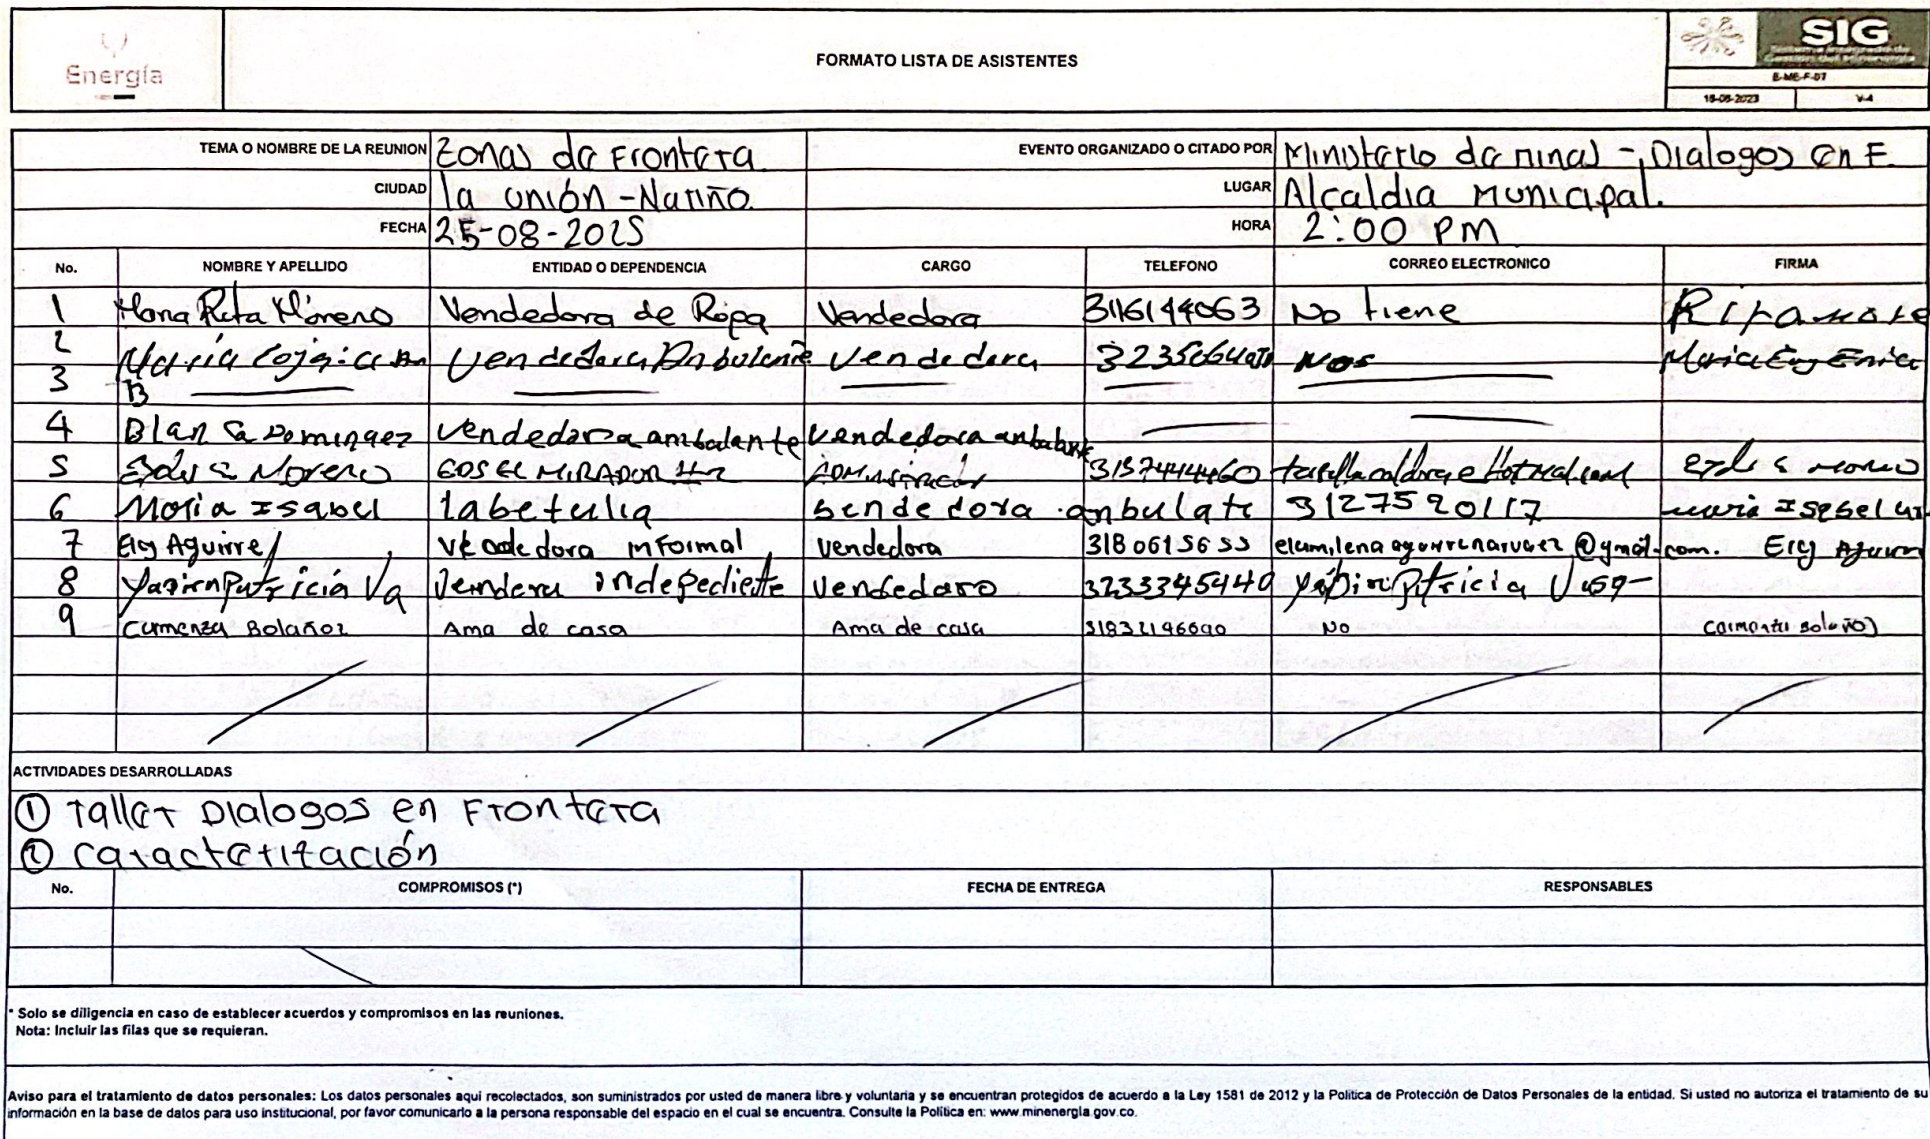 Energía
FORMATO LISTA DE ASISTENTES
SIG
E-ME-F-07
15-08-2023 V-4
TEMA O NOMBRE DE LA REUNION Zonas de Frontera EVENTO ORGANIZADO O CITADO POR Ministerio de minas - Dialogos en F.
CIUDAD la unión - Nariño LUGAR Alcaldia Municipal.
FECHA 25-08-2025 HORA 2:00 PM
No. NOMBRE Y APELLIDO ENTIDAD O DEPENDENCIA CARGO TELEFONO CORREO ELECTRONICO FIRMA
1 Rita Moreno Vendedora de Ropa Vendedora 3116144063 No tiene
2 María Vendedora Vendedora
3
4 Blanca Dominguez Vendedora ambulante Vendedora
5 Moreno EDS EL MIRADOR 3137444460
6 Maria Isabel labetulia bendedora anbulate 3127520117
7 Ely Aguirre Vendedora informal Vendedora 3180615655
8 Patricia Va independiente vendedora 3233345440
9 Bolaños Ama de casa Ama de casa 31832196690 No
ACTIVIDADES DESARROLLADAS
① Taller Dialogos en Frontera
② Caracterización
No. COMPROMISOS (*) FECHA DE ENTREGA RESPONSABLES
* Solo se diligencia en caso de establecer acuerdos y compromisos en las reuniones.
Nota: Incluir las filas que se requieran.
Aviso para el tratamiento de datos personales: Los datos personales aquí recolectados, son suministrados por usted de manera libre y voluntaria y se encuentran protegidos de acuerdo a la Ley 1581 de 2012 y la Política de Protección de Datos Personales de la entidad. Si usted no autoriza el tratamiento de su
información en la base de datos para uso institucional, por favor comunicarlo a la persona responsable del espacio en el cual se encuentra. Consulte la Política en: www.minenergia.gov.co.